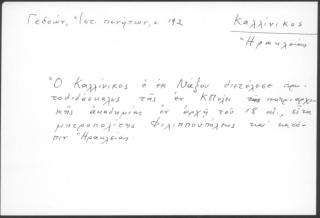 Γεδεών, Ἀ/στ. πενήτων, σ 192
Καλλίνικος
Ἡρακλείας
Ὁ Καλλίνικος ὁ ἐκ Νάξου διετέλεσε πρω-
τοδιδάσκαλος τῆς ἐν ΚΠόλει πατριαρχι-
κῆς ἀκαδημίας ἐν ἀρχῇ τοῦ 18 αἰ., εἶτα
μητροπολίτης Φιλιππουπόλεως καὶ κατό-
πιν Ἡρακλείας.